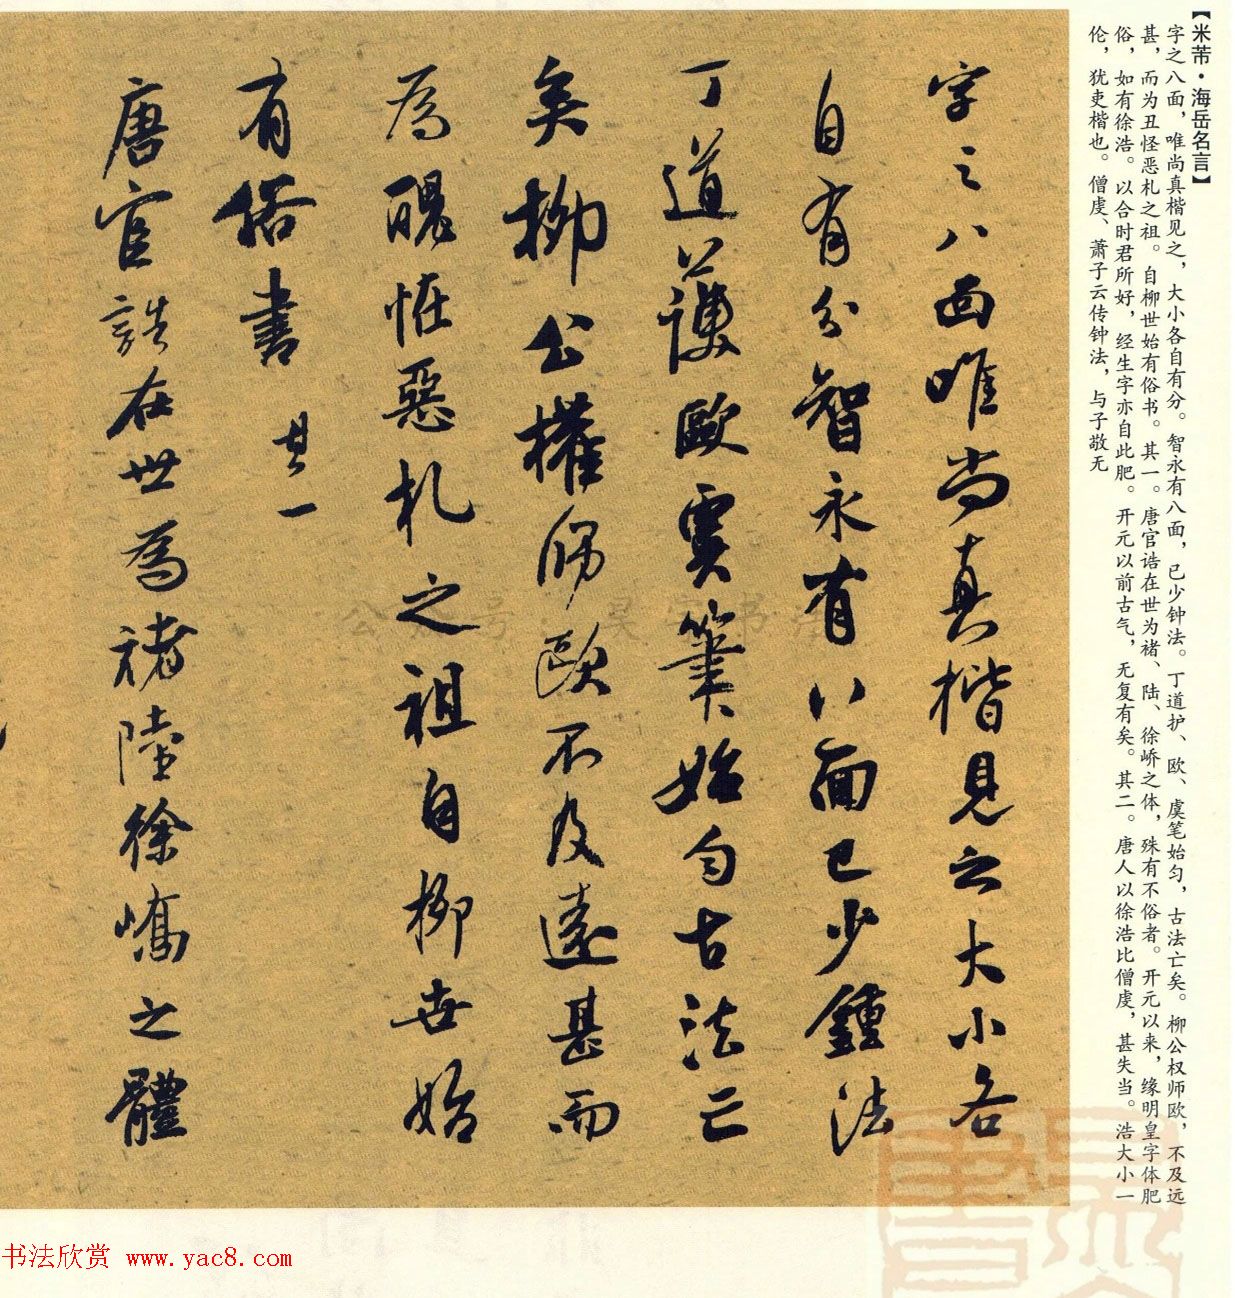 【米芾·海岳名言】
字之八面，唯尚真楷见之，大小各自有分。智永有八面，已少钟法。丁道护、欧、虞笔始匀，古法亡矣。柳公权师欧，不及远
甚，而为丑怪恶札之祖。自柳世始有俗书。其一。唐官诰在世为褚、陆、徐峤之体，殊有不俗者。开元以来，缘明皇字体肥
俗，如有徐浩。以合时君所好，经生字亦自此肥。开元以前古气，无复有矣。其二。唐人以徐浩比僧虔，甚失当。浩大小一
伦，犹吏楷也。僧虔、萧子云传钟法，与子敬无
字之八面唯尚真楷見之大小各
自有分智永有八面已少鍾法
丁道護歐虞筆始匀古法亡
矣柳公權師歐不及遠甚而
為醜怪惡札之祖自柳世始
有俗書 其一
唐官誥在世為褚陸徐嶠之體
书法欣赏 www.yac8.com